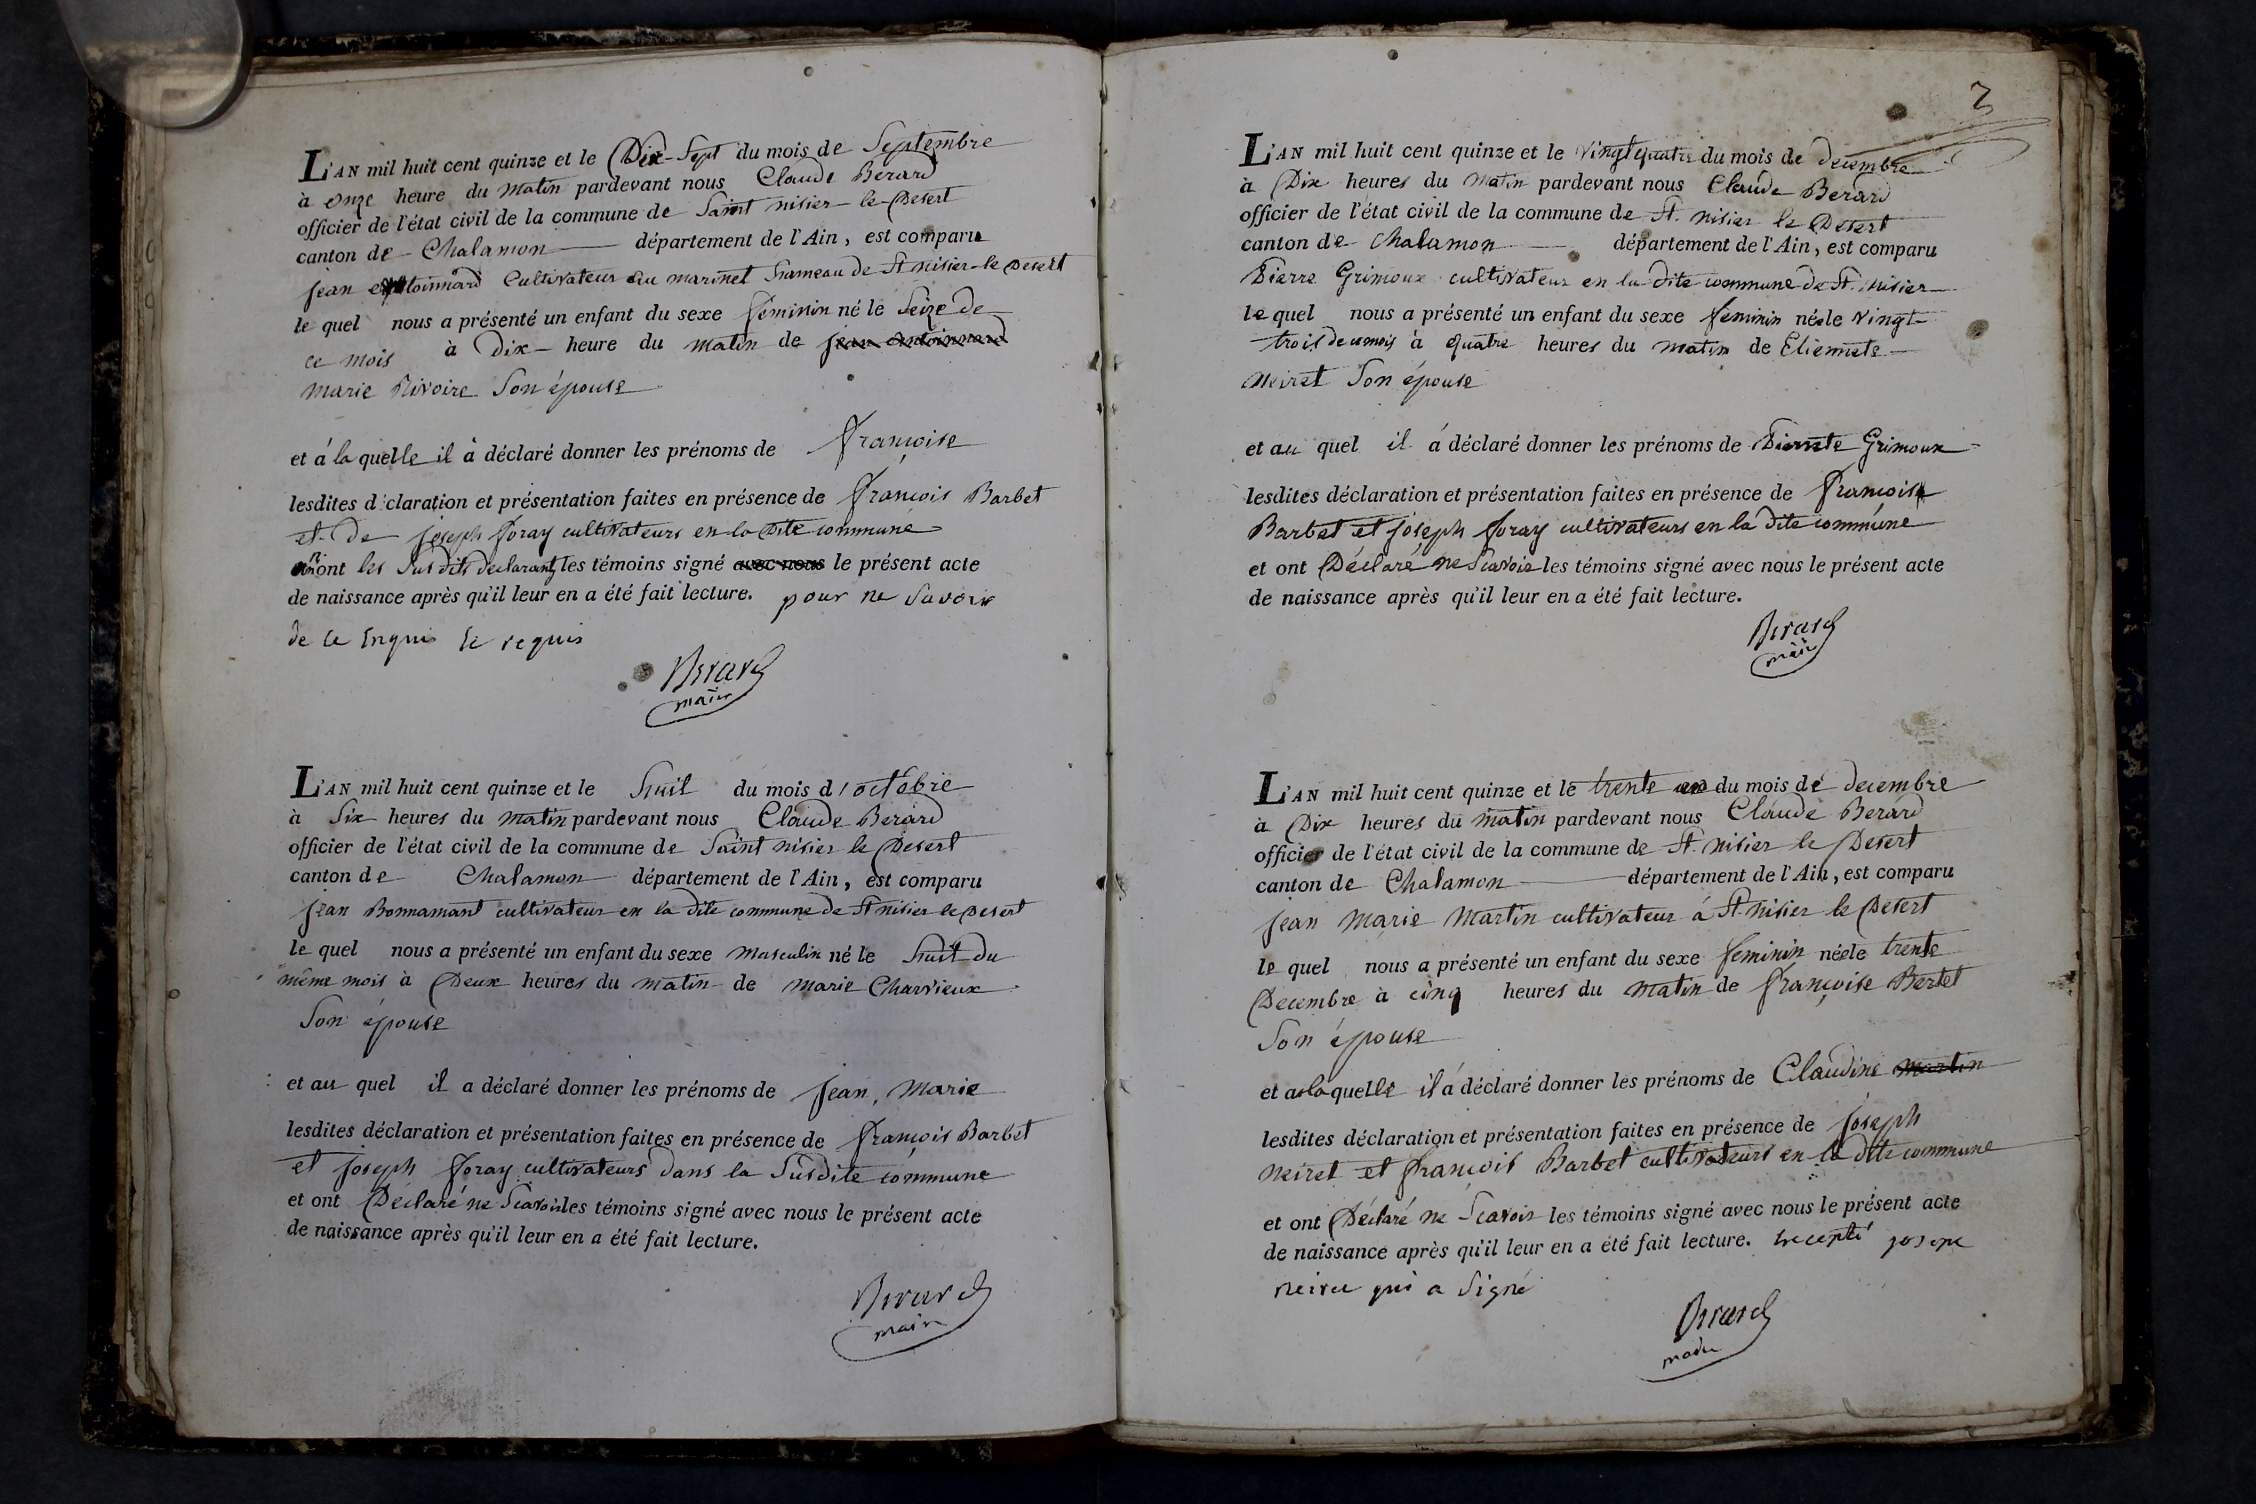 L'AN mil huit cent quinze et le Dix-Sept du mois de Septembre
à onze heure du matin pardevant nous Claude Berard
officier de l'état civil de la commune de Saint nisier-le-Desert
canton de Chalamon département de l'Ain, est comparu
jean cultivateur au marinet hameau de St nisier-le Desert
le quel nous a présenté un enfant du sexe feminin né le Seize de
ce mois à Dix heure du matin de jean antoinnard
marie Rivoire Son épouse
et á la quelle il à déclaré donner les prénoms de françoise
lesdites d claration et présentation faites en présence de françois Barbet
et de joseph foray cultivateurs en la Dite commune
n'ont les Sus dits declarants les témoins signé avec nous le présent acte
de naissance après qu'il leur en a été fait lecture. pour ne Savoir
de ce Enquis
Berard
maire
L'AN mil huit cent quinze et le huit du mois d'octobre
à Six heures du matin pardevant nous Claude Berard
officier de l'état civil de la commune de Saint nisier le Desert
canton de Chalamon département de l'Ain, est comparu
jean Bonnamant cultivateur en la dite commune de St nisier le Desert
le quel nous a présenté un enfant du sexe masculin né le huit du
même mois à Deux heures du matin de marie Charvieux
Son épouse
et au quel il a déclaré donner les prénoms de jean, marie
lesdites déclaration et présentation faites en présence de françois Barbet
et joseph foray cultivateurs dans la Susdite commune
et ont Déclaré ne Scavoir les témoins signé avec nous le présent acte
de naissance après qu'il leur en a été fait lecture.
Berard
maire
2
L'AN mil huit cent quinze et le vingt quatre du mois de decembre
à Dix heures du matin pardevant nous Claude Berard
officier de l'état civil de la commune de St. nisier le Desert
canton de Chalamon département de l'Ain, est comparu
Pierre Grimoux cultivateur en la dite commune de St. nisier
le quel nous a présenté un enfant du sexe feminin née le vingt
trois de ce mois à quatre heures du matin de Etiennete
Neiret Son épouse
et au quel il á déclaré donner les prénoms de Pierrete Grimoux
lesdites déclaration et présentation faites en présence de françois
Barbet et joseph foray cultivateurs en la dite commune
et ont Déclaré ne Scavoir les témoins signé avec nous le présent acte
de naissance après qu'il leur en a été fait lecture.
Berard
maire
L'AN mil huit cent quinze et le trente un du mois de decembre
à Dix heures du matin pardevant nous Claude Berard
officier de l'état civil de la commune de St. nisier le Desert
canton de Chalamon département de l'Ain, est comparu
jean marie martin cultivateur á St. nisier le Desert
le quel nous a présenté un enfant du sexe feminin née le trente
Decembre à cinq heures du matin de françoise Bertet
Son épouse
et a la quelle il á déclaré donner les prénoms de Claudine martin
lesdites déclaration et présentation faites en présence de joseph
neiret et françois Barbet cultivateurs en la dite commune
et ont Déclaré ne Scavoir les témoins signé avec nous le présent acte
de naissance après qu'il leur en a été fait lecture. excepté
qui a Signé
Berard
maire